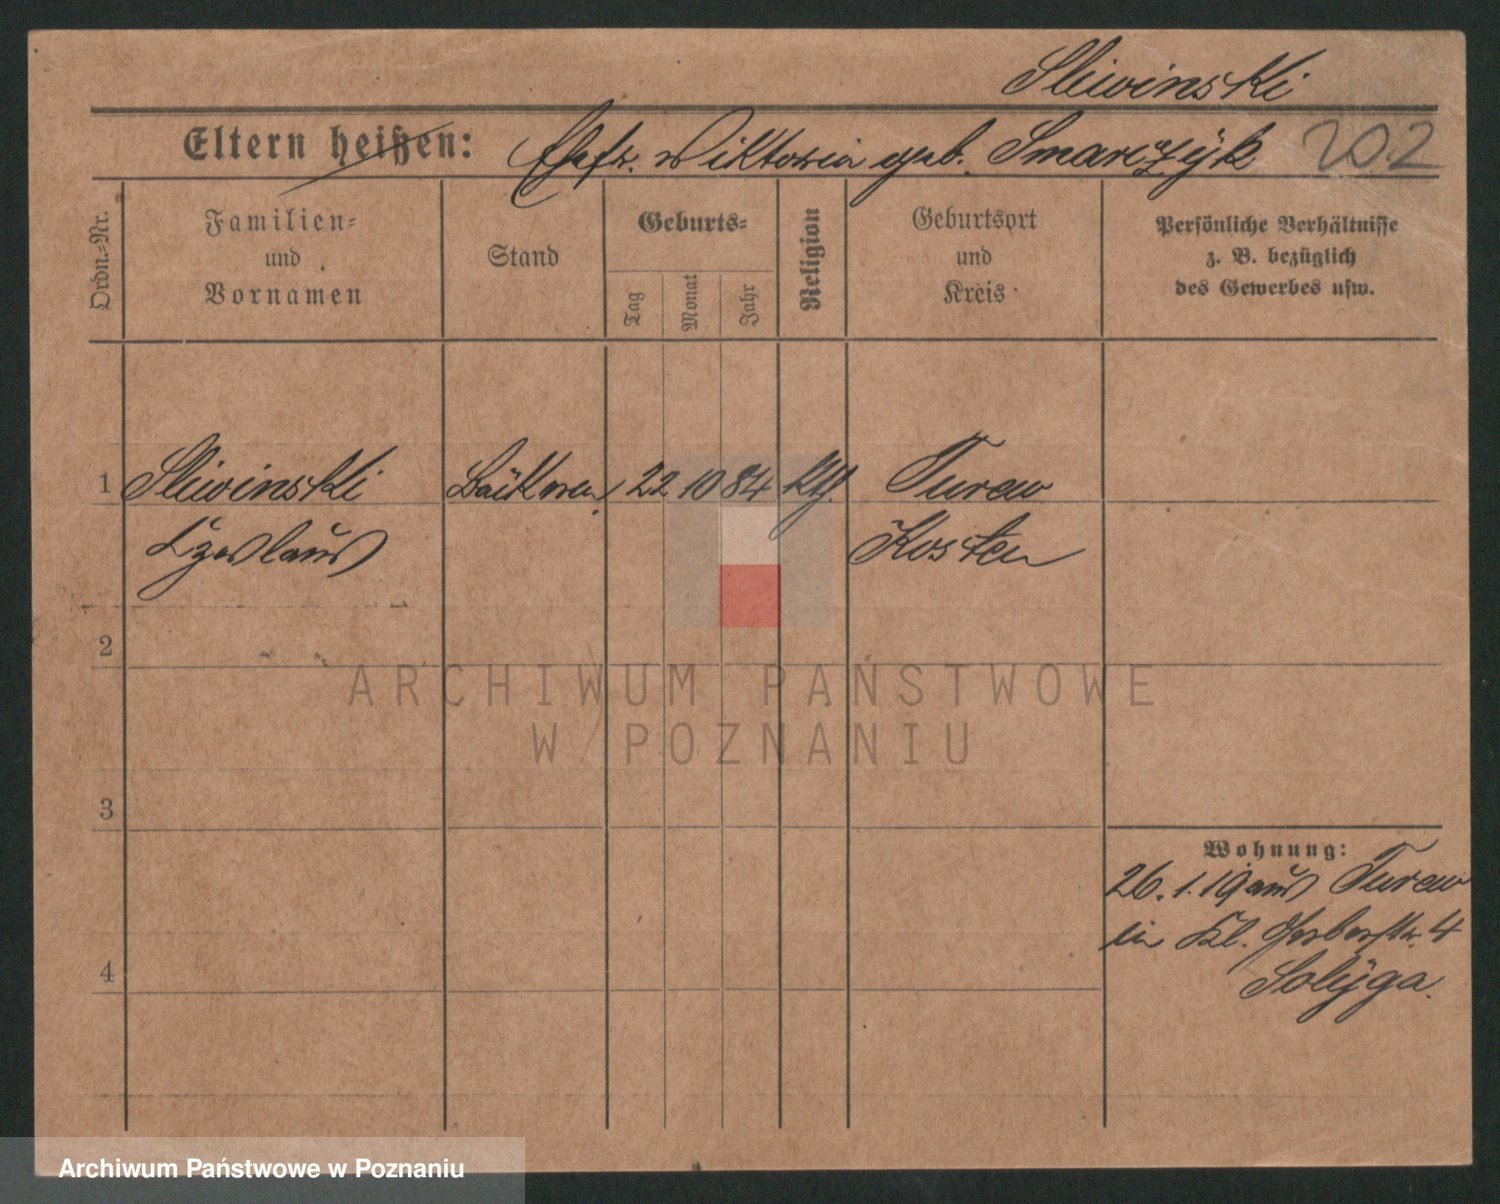 Sliwinski
Eltern heißen: Ehefr. Wiktoria geb. Smarczÿk 202
Ordn.=Nr.
Familien=
und
Vornamen
Stand
Geburts=
Tag
Monat
Jahr
Religion
Geburtsort
und
Kreis
Persönliche Verhältnisse
z. B. bezüglich
des Gewerbes usw.
1 Sliwinski 22 10 84 kth. Turew
Czeslaus Kosten
2
ARCHIWUM PAŃSTWOWE
W POZNANIU
3
Wohnung:
26. 1. 19 aus Turew
in Kl. Gerberstr. 4
4
Solÿga.
Archiwum Państwowe w Poznaniu